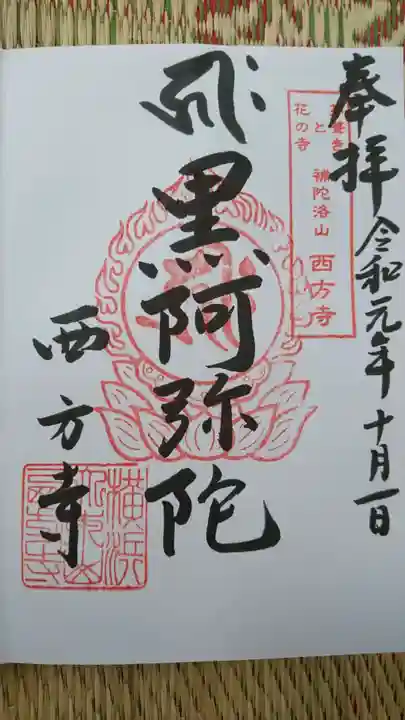 奉拝
令和元年十月一日
と
花の寺
補陀洛山
西方寺
黒阿弥陀
西方寺
横浜